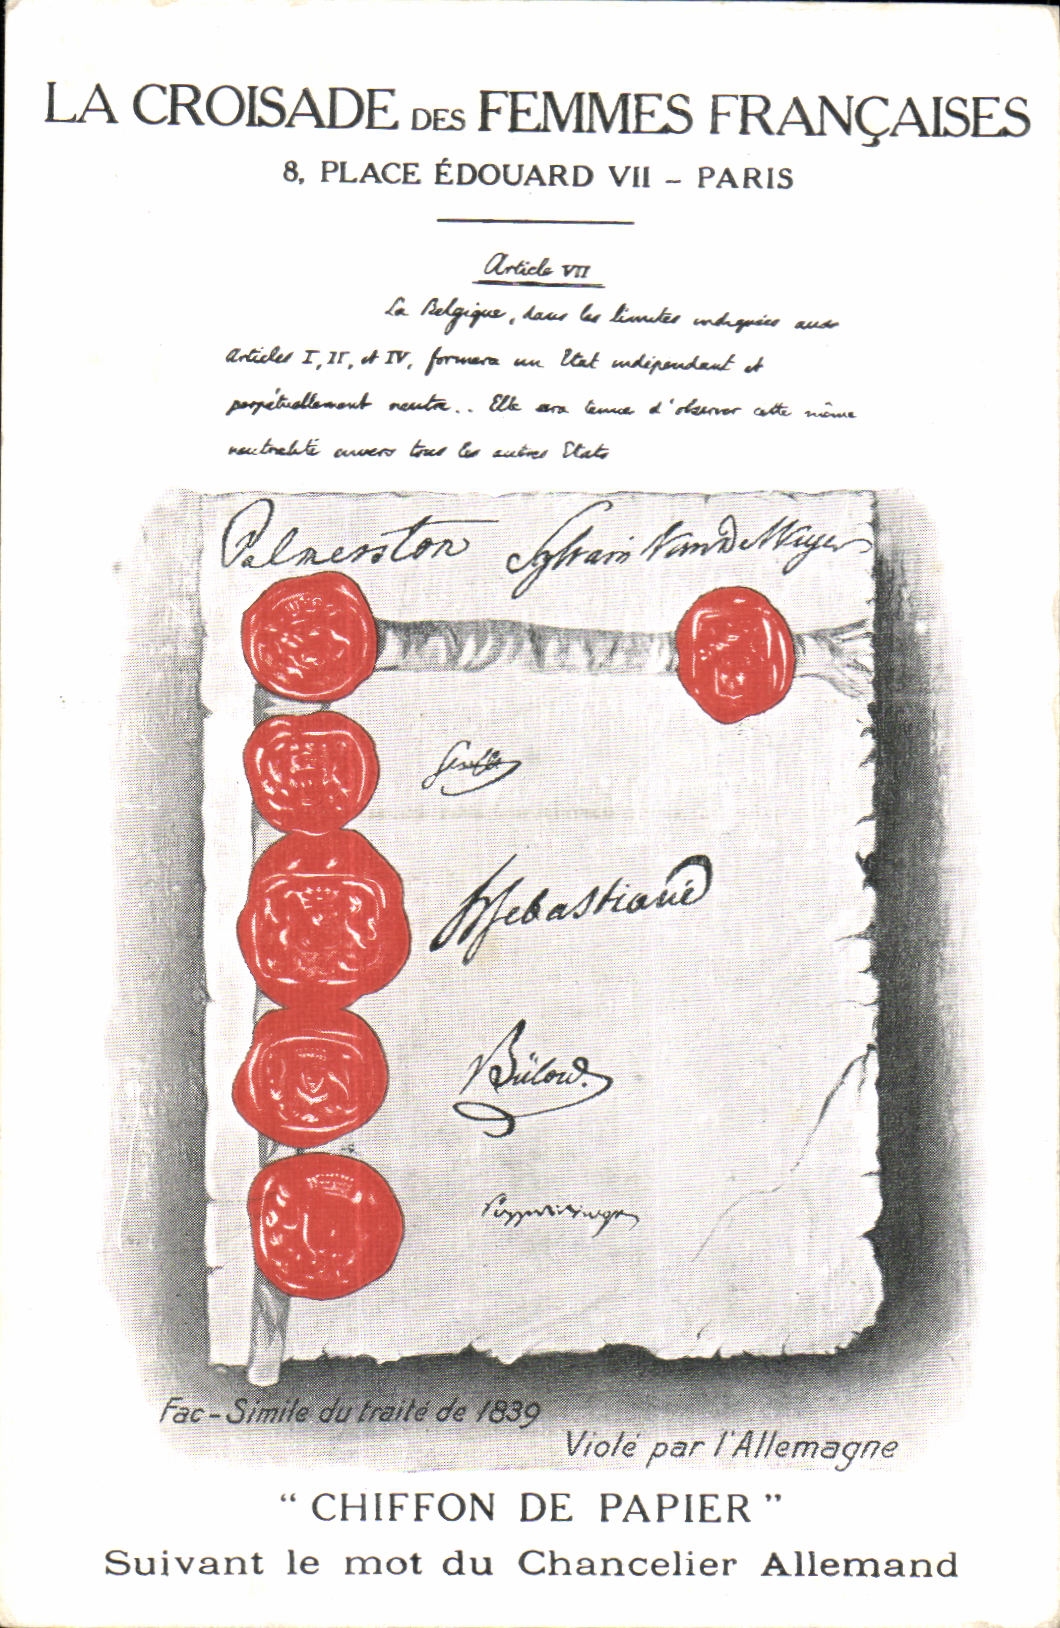 LA CROISADE DES FEMMES FRANÇAISES
8, PLACE ÉDOUARD VII – PARIS
Article VII
La Belgique, dans les limites indiquées aux
articles I, II, et IV, formera un Etat indépendant et
perpétuellement neutre.. Elle sera tenue d'observer cette même
neutralité envers tous les autres Etats
Palmerston Sylvain Van de Weyer
Sebastiani
Bülow
Fac-Simile du traité de 1839
Violé par l'Allemagne
“ CHIFFON DE PAPIER ”
Suivant le mot du Chancelier Allemand